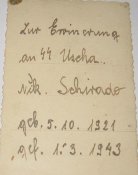 Zur Erinnerung
an SS Uscha..
Nik. Schirado
geb. 5. 10. 1921
gef. 1. 3. 1943